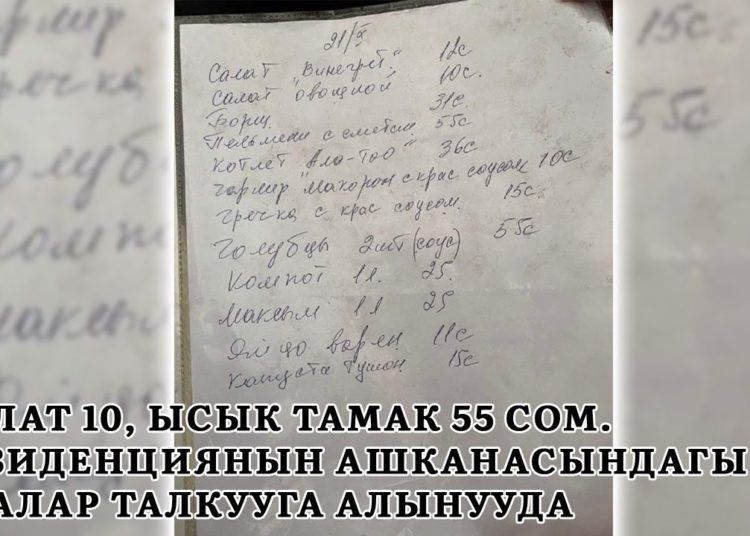 21/X
Салат "Винегрет" 12с
Салат "Овощной" 10с.
Борщ 31с.
Пельмени с сметан. 55с
Котлет "Ала-Тоо" 36с
Гарнир "Макорон с крас соусом 10с
гречка с крас соусом. 15с.
Голубцы 2шт (соус) 55с
Компот 1л. 25.
Максым 1л 25
Яйцо варен 11с
Капуста Тушон 15с
ЛАТ 10, ЫСЫК ТАМАК 55 СОМ.
ЗИДЕНЦИЯНЫН АШКАНАСЫНДАГЫ
АЛАР ТАЛКУУГА АЛЫНУУДА